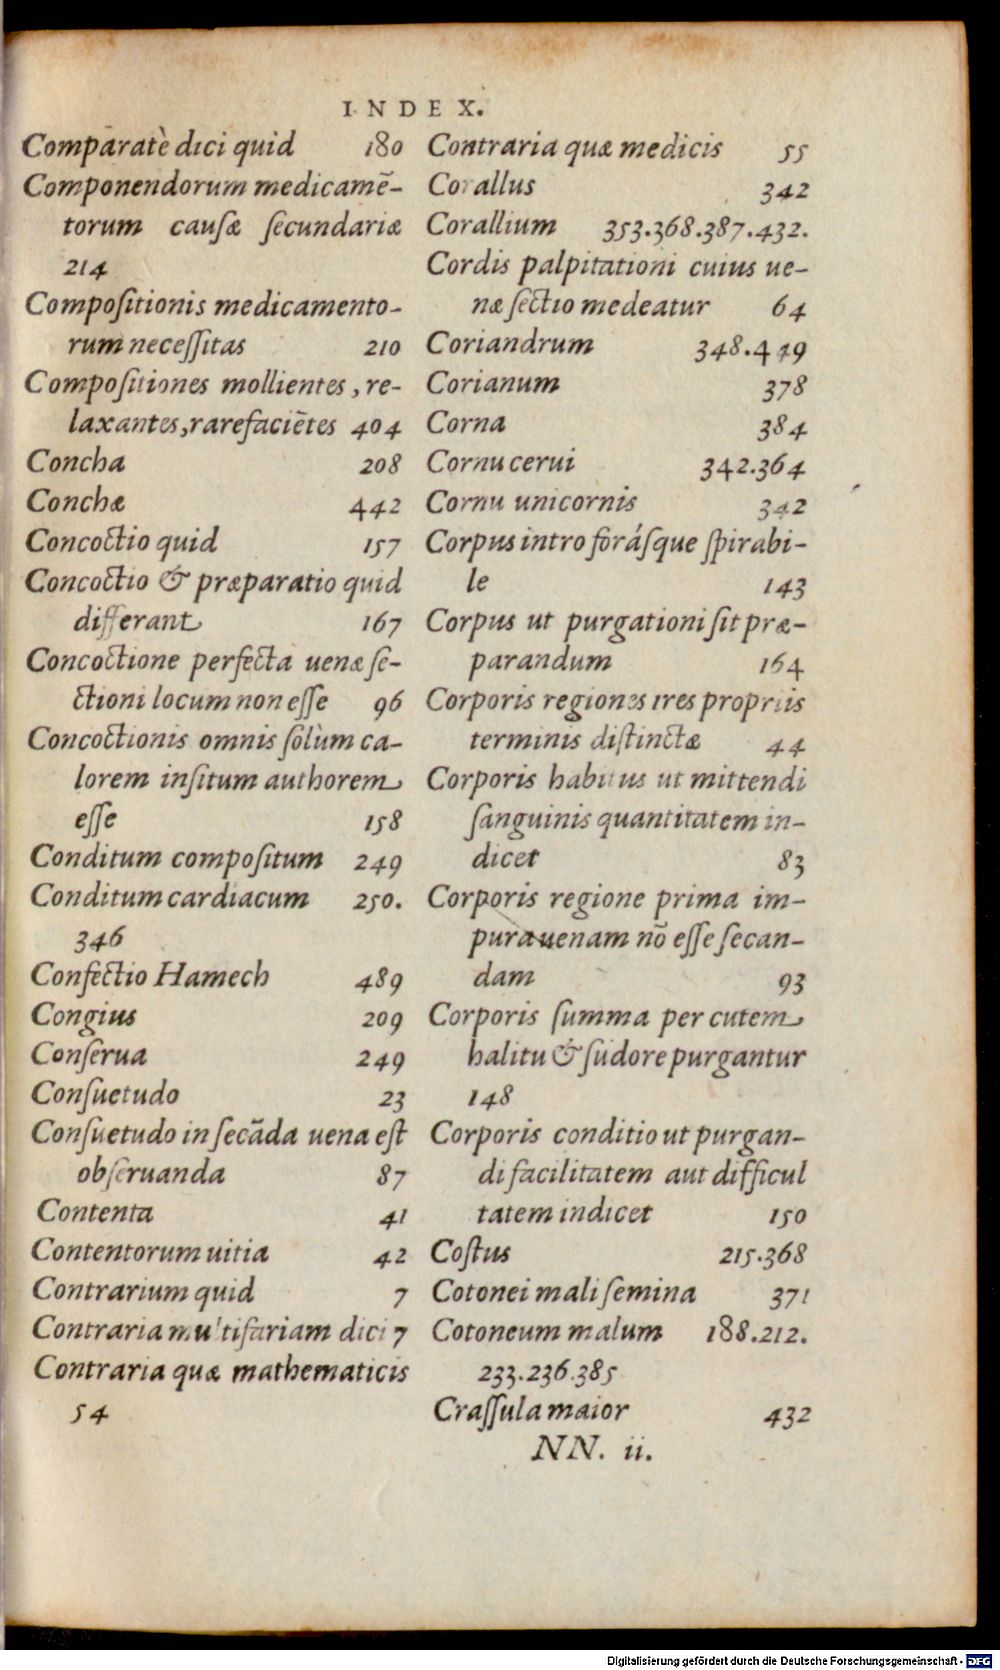 INDEX.
Comparatè dici quid 180
Componendorum medicamē-
torum causæ secundariæ
214
Compositionis medicamento-
rum necessitas 210
Compositiones mollientes, re-
laxantes, rarefaciētes 404
Concha 208
Conchæ 442
Concoctio quid 157
Concoctio & præparatio quid
differant 167
Concoctione perfecta uenæ se-
ctioni locum non esse 96
Concoctionis omnis solùm ca-
lorem insitum authorem
esse 158
Conditum compositum 249
Conditum cardiacum 250.
346
Confectio Hamech 489
Congius 209
Conserua 249
Consuetudo 23
Consuetudo in secāda uena est
obseruanda 87
Contenta 41
Contentorum uitia 42
Contrarium quid 7
Contraria multifariam dici 7
Contraria quæ mathematicis
54
Contraria quæ medicis 55
Corallus 342
Corallium 353.368.387.432.
Cordis palpitationi cuius ue-
næ sectio medeatur 64
Coriandrum 348.449
Corianum 378
Corna 384
Cornu cerui 342.364
Cornu unicornis 342
Corpus intro forásque spirabi-
le 143
Corpus ut purgationi sit præ-
parandum 164
Corporis regiones tres propriis
terminis distinctæ 44
Corporis habitus ut mittendi
sanguinis quantitatem in-
dicet 83
Corporis regione prima im-
pura uenam nō esse secan-
dam 93
Corporis summa per cutem
halitu & sudore purgantur
148
Corporis conditio ut purgan-
di facilitatem aut difficul
tatem indicet 150
Costus 215.368
Cotonei mali semina 371
Cotoneum malum 188.212.
233.236.385
Crassula maior 432
NN. ii.
Digitalisierung gefördert durch die Deutsche Forschungsgemeinschaft - DFG